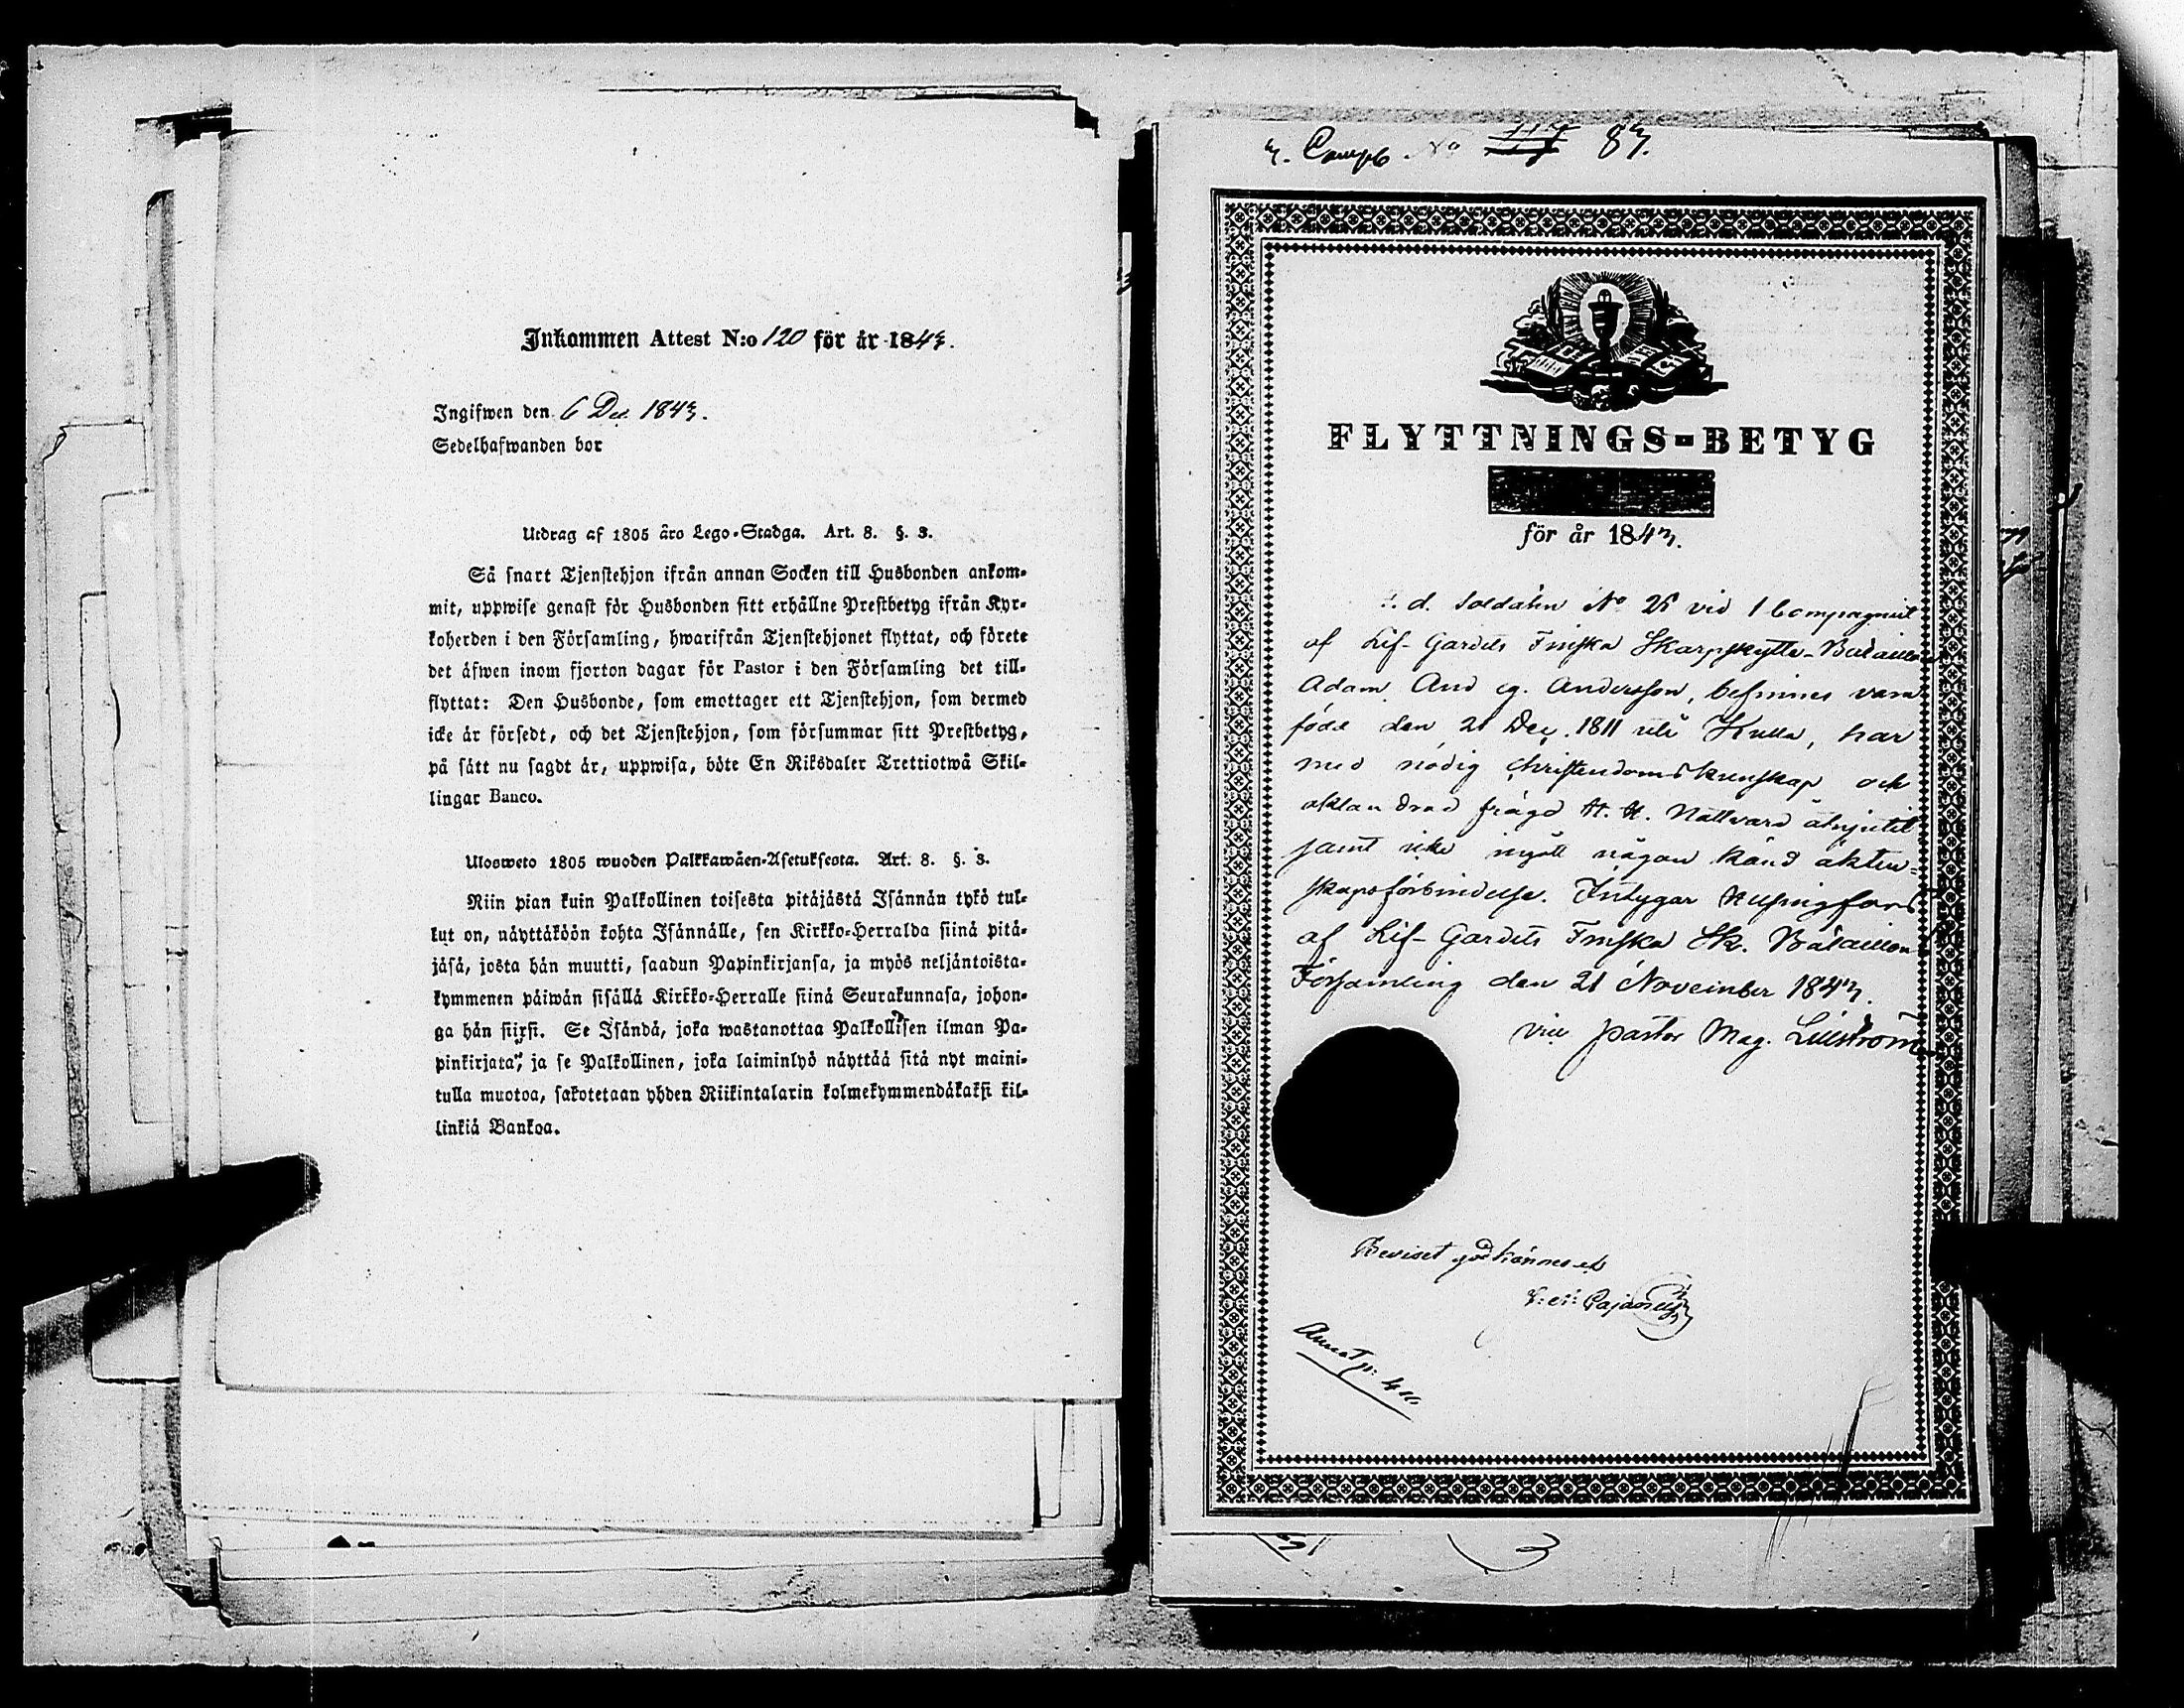 Inkommen Attest N:o 120 för år 1843.
Ingifwen den 6 Dec. 1843.
Sedelhafwanden bor
Utdrag af 1805 års Lego-Stadga. Art. 8. §. 3.
Så snart Tjenstehjon ifrån annan Socken till Husbonden ankom-
mit, uppwise genast för Husbonden sitt erhållne Prestbetyg ifrån Kyr-
koherden i den Församling, hwarifrån Tjenstehjonet flyttat, och förete
det äfwen inom fjorton dagar för Pastor i den Församling det till-
flyttat: Den Husbonde, som emottager ett Tjenstehjon, som dermed
icke är försedt, och det Tjenstehjon, som försummar sitt Prestbetyg,
på sätt nu sagdt är, uppwisa, böte En Riksdaler Trettiotwå Skil-
lingar Banco.
Ulosweto 1805 wuoden Palkkawäen-Asetuksesta. Art. 8. §. 3.
Niin pian kuin Palkollinen toisesta pitäjästä Isännän tykö tul-
lut on, näyttäköön kohta Isännälle, sen Kirkko-Herralda siinä pitä-
jäsä, josta hän muutti, saadun Papinkirjansa, ja myös neljäntoista-
kymmenen päiwän sisällä Kirkko-Herralle siinä Seurakunnasa, johon-
ga hän siirsi. Se Isändä, joka wastanottaa Palkollisen ilman Pa-
pinkirjata, ja se Palkollinen, joka laiminlyö näyttää sitä nyt maini-
tulla muotoa, sakotetaan yhden Riikintalarin kolmekymmendäkaksi kil-
linkiä Bankoa.
Compb No 117 83.
FLYTTNINGS-BETYG
för år 1843.
f. d. Soldaten No 25 vid 1 Compagniet
af Lif-Gardets Finska Skarpskytte-Bataillon
Adam And eg. Andersson, befinnes vara
född den 21 Dec. 1811 uti Kulla, har
med nödig Christendomskunskap och
oklandrad frägd H. H. Nattvard åtnjutit
samt icke ingått någon känd äkten-
skapsförbindelse. Intygar Helsingfors
af Lif-Gardets Finska Sk. Bataillons
Församling den 21 November 1843.
vice pastor Mag. Lillström
Beviset godkännes
Annot p: 411